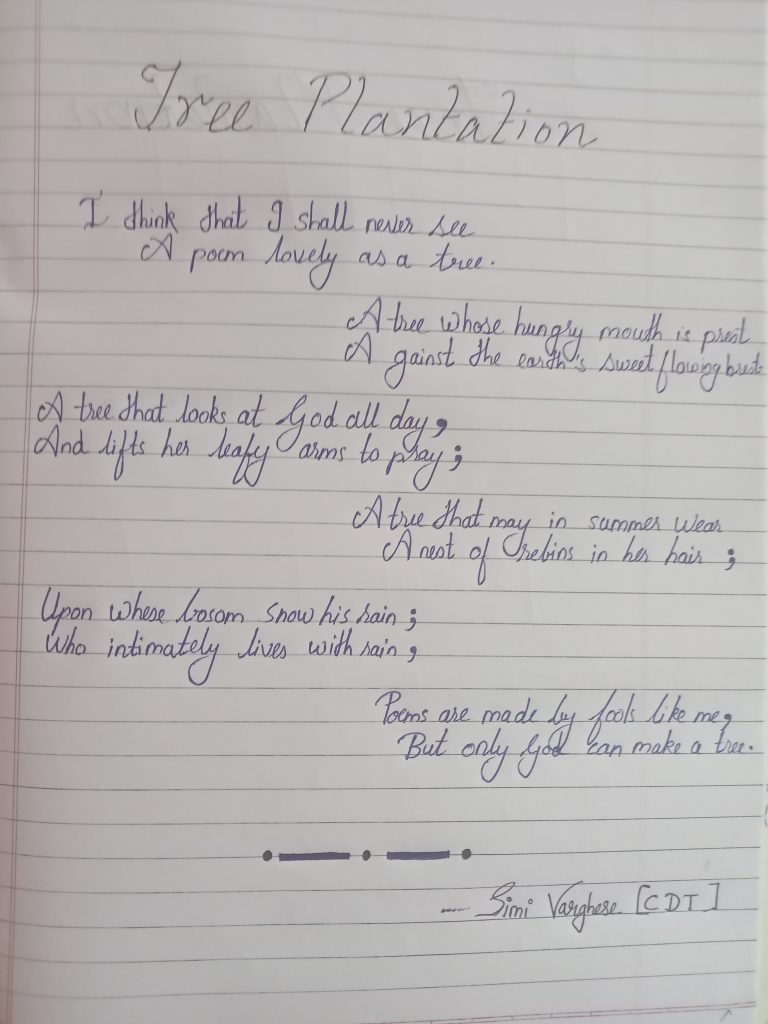 Tree Plantation
I think that I shall never see
A poem lovely as a tree.
A tree whose hungry mouth is prest
A gainst the earth's sweet flowing brest
A tree that looks at God all day,
And lifts her leafy arms to pray;
A tree that may in summer wear
A nest of rebins in her hair ;
Upon whose bosom snow his rain ;
Who intimately lives with rain ,
Poems are made by fools like me,
But only God can make a tree.
Simi Varghese [CDT]